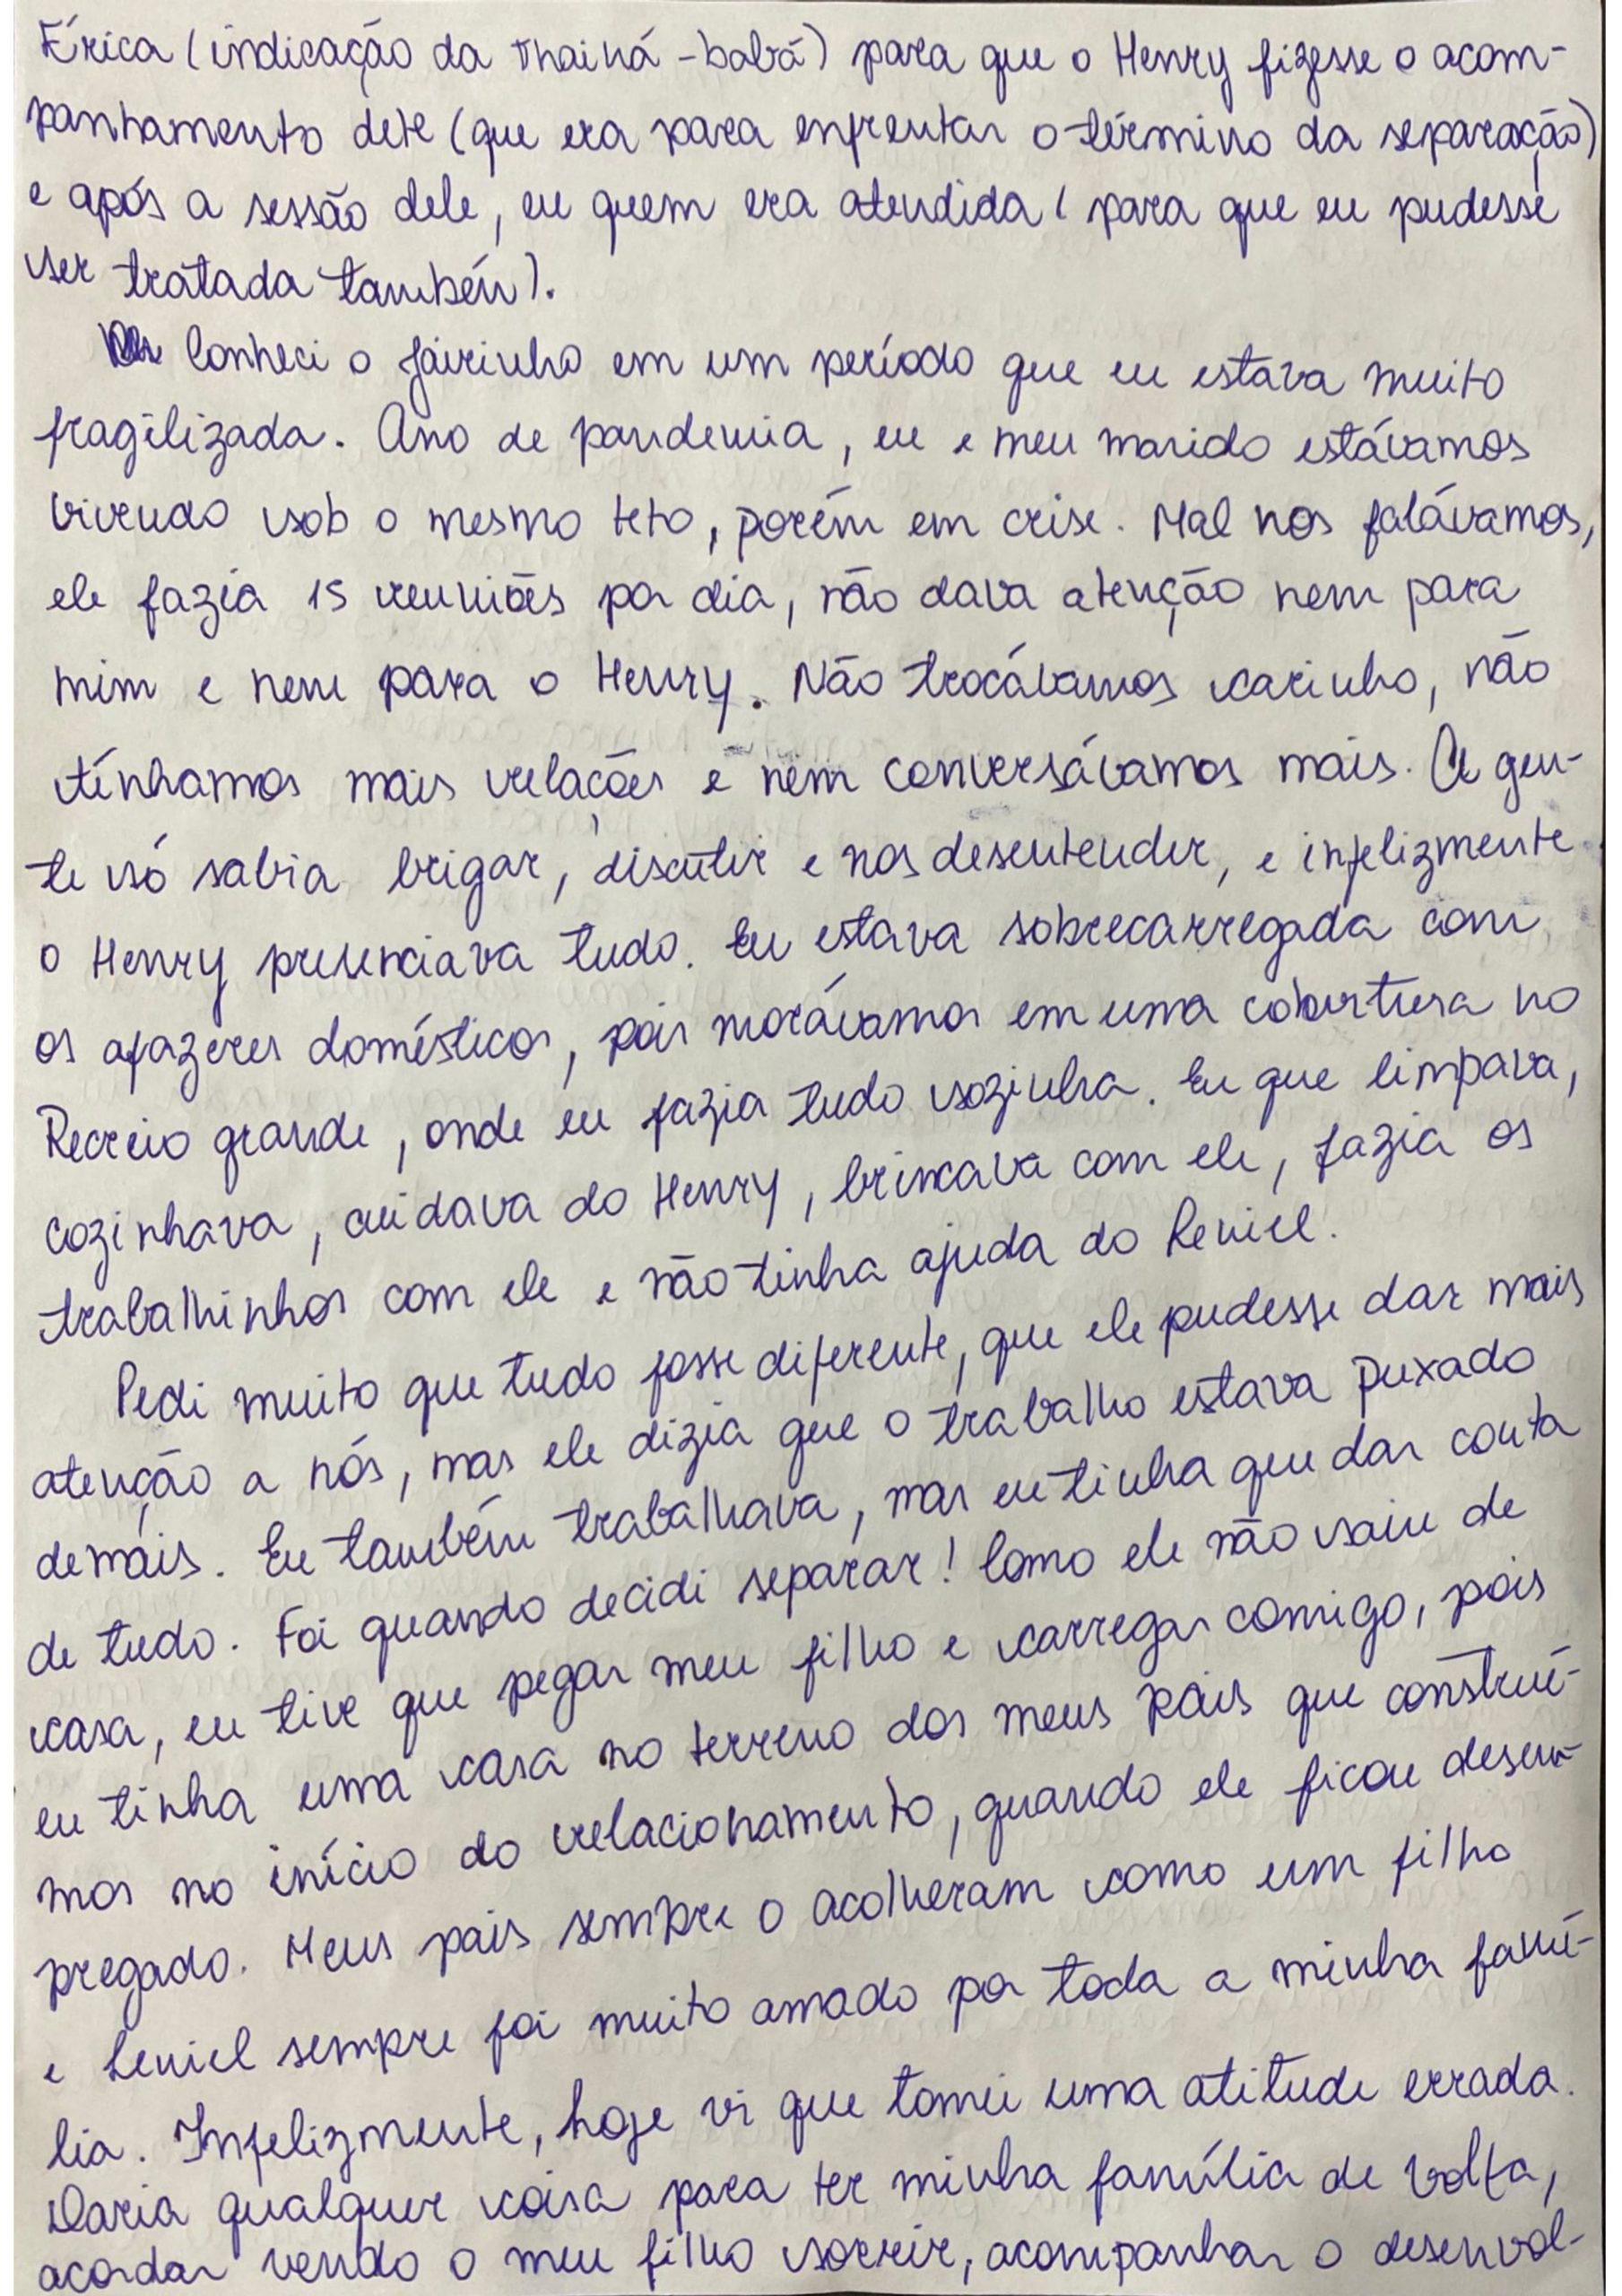 Érica (indicação da Thainá - babá) para que o Henry fizesse o acom-
panhamento dele (que era para enfrentar o término da separação)
e após a sessão dele, eu quem era atendida (para que eu pudesse
ser tratada também).
Conheci o Jairinho em um período que eu estava muito
fragilizada. Ano de pandemia, eu e meu marido estávamos
vivendo sob o mesmo teto, porém em crise. Mal nos falávamos,
ele fazia 15 reuniões por dia, não dava atenção nem para
mim e nem para o Henry. Não trocávamos carinho, não
tínhamos mais relações e nem conversávamos mais. A gen-
te só sabia brigar, discutir e nos desentender, e infelizmente
o Henry presenciava tudo. Eu estava sobrecarregada com
os afazeres domésticos, pois morávamos em uma cobertura no
Recreio grande, onde eu fazia tudo sozinha. Eu que limpava,
cozinhava, cuidava do Henry, brincava com ele, fazia os
trabalhinhos com ele e não tinha ajuda do Leniel.
Pedi muito que tudo fosse diferente, que ele pudesse dar mais
atenção a nós, mas ele dizia que o trabalho estava puxado
demais. Eu também trabalhava, mas eu tinha que dar conta
de tudo. Foi quando decidi separar! Como ele não saiu de
casa, eu tive que pegar meu filho e carregar comigo, pois
eu tinha uma casa no terreno dos meus pais que construí-
mos no início do relacionamento, quando ele ficou desem-
pregado. Meus pais sempre o acolheram como um filho
e Leniel sempre foi muito amado por toda a minha famí-
lia. Infelizmente, hoje vi que tomei uma atitude errada.
Daria qualquer coisa para ter minha família de volta,
acordar vendo o meu filho sorrir, acompanhar o desenvol-